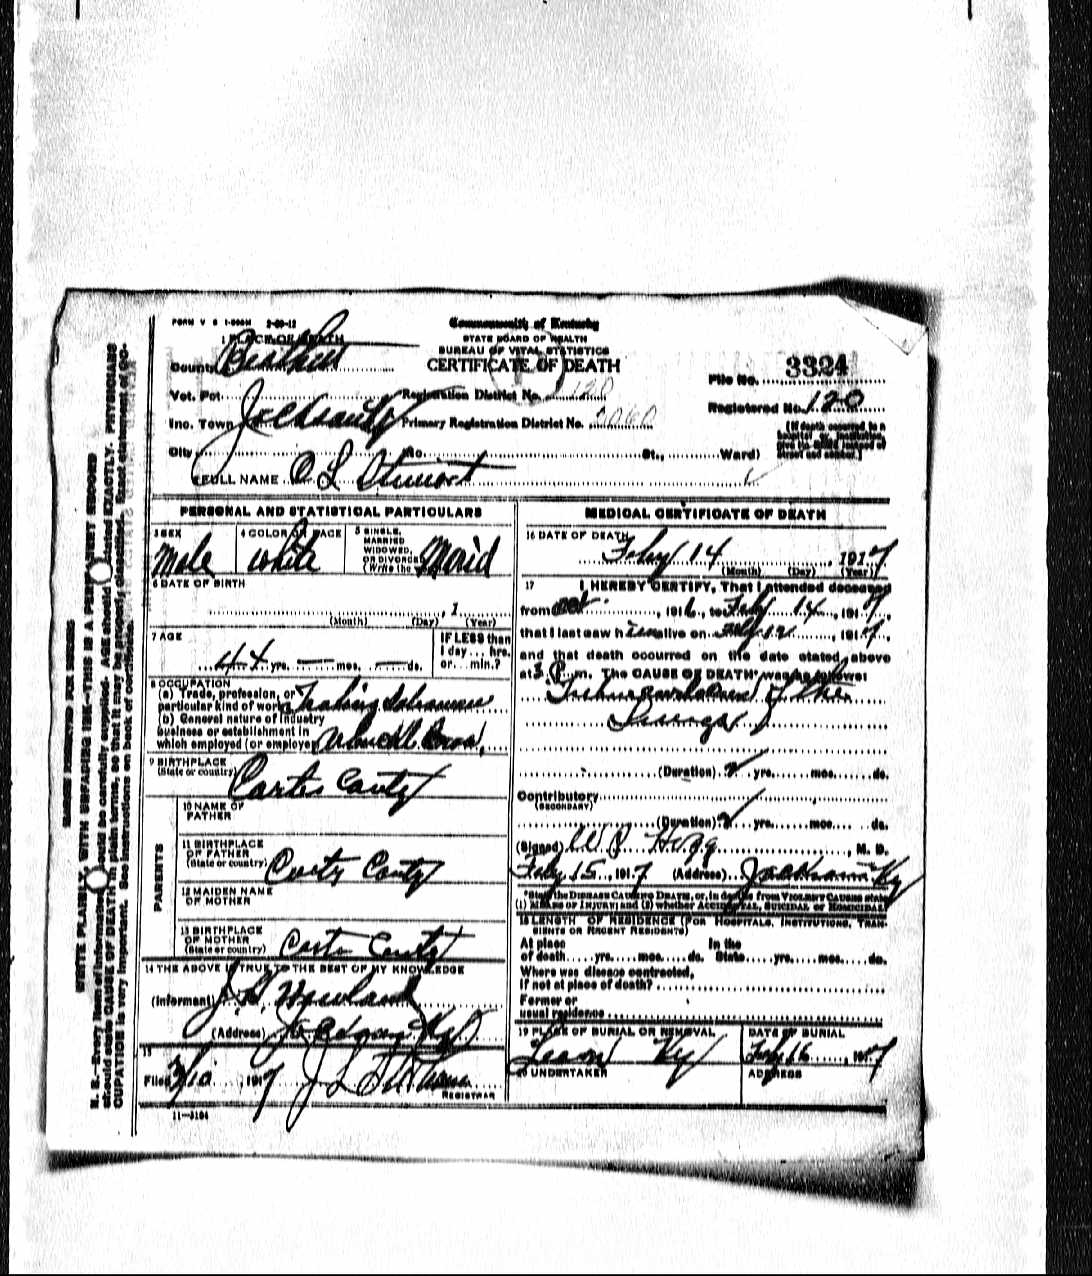 FORM V S 1-500M 2-20-12
Commonwealth of Kentucky
STATE BOARD OF HEALTH
BUREAU OF VITAL STATISTICS
CERTIFICATE OF DEATH
1 PLACE OF DEATH
County Breathitt
File No. 3324
Vot. Pct. Registration District No. 120
Registered No. 120
Inc. Town Jackson Ky Primary Registration District No. 2060
(If death occurred in a hospital or institution, give its NAME instead of street and number.)
City No. St., Ward)
2 FULL NAME O L Stewart
PERSONAL AND STATISTICAL PARTICULARS
3 SEX Male
4 COLOR OR RACE white
5 SINGLE, MARRIED WIDOWED, OR DIVORCED (Write the Marid
6 DATE OF BIRTH
, 1
(Month) (Day) (Year)
7 AGE
44 yrs. — mos. — ds.
IF LESS than
1 day ... hrs.
or ... min.?
8 OCCUPATION
(a) Trade, profession, or
particular kind of work
(b) General nature of industry
business or establishment in
which employed (or employer) Bros.
9 BIRTHPLACE
(State or country) Carter Conty
PARENTS
10 NAME OF
FATHER
11 BIRTHPLACE
OF FATHER
(State or country) Carter Conty
12 MAIDEN NAME
OF MOTHER
13 BIRTHPLACE
OF MOTHER
(State or country) Carter Conty
14 THE ABOVE IS TRUE TO THE BEST OF MY KNOWLEDGE
(Informant) J.
(Address) Ky
15
Filed 1917 J L
REGISTRAR
11-3184
MEDICAL CERTIFICATE OF DEATH
16 DATE OF DEATH
Feby 14, 1917
(Month) (Day) (Year)
17 I HEREBY CERTIFY, That I attended deceased
from Oct , 1916, to Feby 14, 1917,
that I last saw him alive on Feby 12, 1917,
and that death occurred on the date stated above
at 3 P.m. The CAUSE OF DEATH* was as follows:
Tuburculosis of the
Lungs
(Duration) 2 yrs. mos. ds.
Contributory
(SECONDARY)
(Duration) 2 yrs. mos. ds.
(Signed) W P Hogg, M. D.
Feby 15, 1917 (Address) Jackson Ky
*State the DISEASE CAUSING DEATH, or, in deaths from VIOLENT CAUSES state
(1) MEANS OF INJURY; and (2) whether ACCIDENTAL, SUICIDAL or HOMICIDAL
18 LENGTH OF RESIDENCE (FOR HOSPITALS, INSTITUTIONS, TRAN-
SIENTS OR RECENT RESIDENTS)
At place In the
of death yrs. mos. ds. State yrs. mos. ds.
Where was disease contracted,
if not at place of death?
Former or
usual residence
19 PLACE OF BURIAL OR REMOVAL
Leon Ky
DATE OF BURIAL
Feby 16, 1917
20 UNDERTAKER
ADDRESS
MARGIN RESERVED FOR BINDING
WRITE PLAINLY, WITH UNFADING INK—THIS IS A PERMANENT RECORD
N. B.—Every item of information should be carefully supplied. AGE should be stated EXACTLY. PHYSICIANS
should state CAUSE OF DEATH in plain terms, so that it may be properly classified. Exact statement of OC-
CUPATION is very important. See instructions on back of certificate.